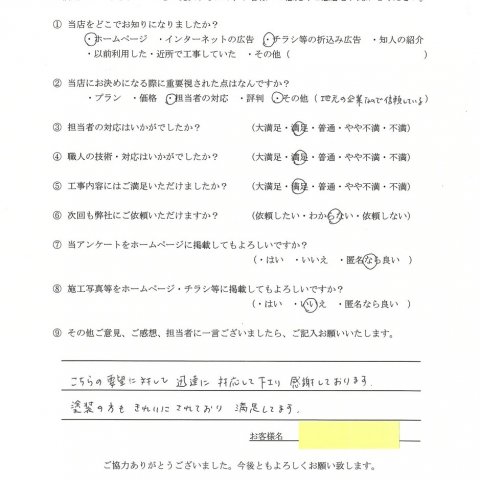 ① 当店をどこでお知りになりましたか？
・ホームページ ・インターネットの広告 ・チラシ等の折込み広告 ・知人の紹介
・以前利用した・近所で工事していた ・その他（ ）
② 当店にお決めになる際に重要視された点はなんですか？
・プラン ・価格 ・担当者の対応 ・評判 ・その他（地元の企業なので信頼している）
③ 担当者の対応はいかがでしたか？ （大満足・満足・普通・やや不満・不満）
④ 職人の技術・対応はいかがでしたか？ （大満足・満足・普通・やや不満・不満）
⑤ 工事内容にはご満足いただけましたか？ （大満足・満足・普通・やや不満・不満）
⑥ 次回も弊社にご依頼いただけますか？ （依頼したい・わからない・依頼しない）
⑦ 当アンケートをホームページに掲載してもよろしいですか？
（・はい ・いいえ ・匿名なら良い ）
⑧ 施工写真等をホームページ・チラシ等に掲載してもよろしいですか？
（・はい ・いいえ ・匿名なら良い）
⑨ その他ご意見、ご感想、担当者に一言ございましたら、ご記入お願いいたします。
こちらの要望に対して 迅速に 対応して下さり 感謝しております．
塗装の方も きれいにされており 満足してます．
お客様名
ご協力ありがとうございました。今後ともよろしくお願い致します。